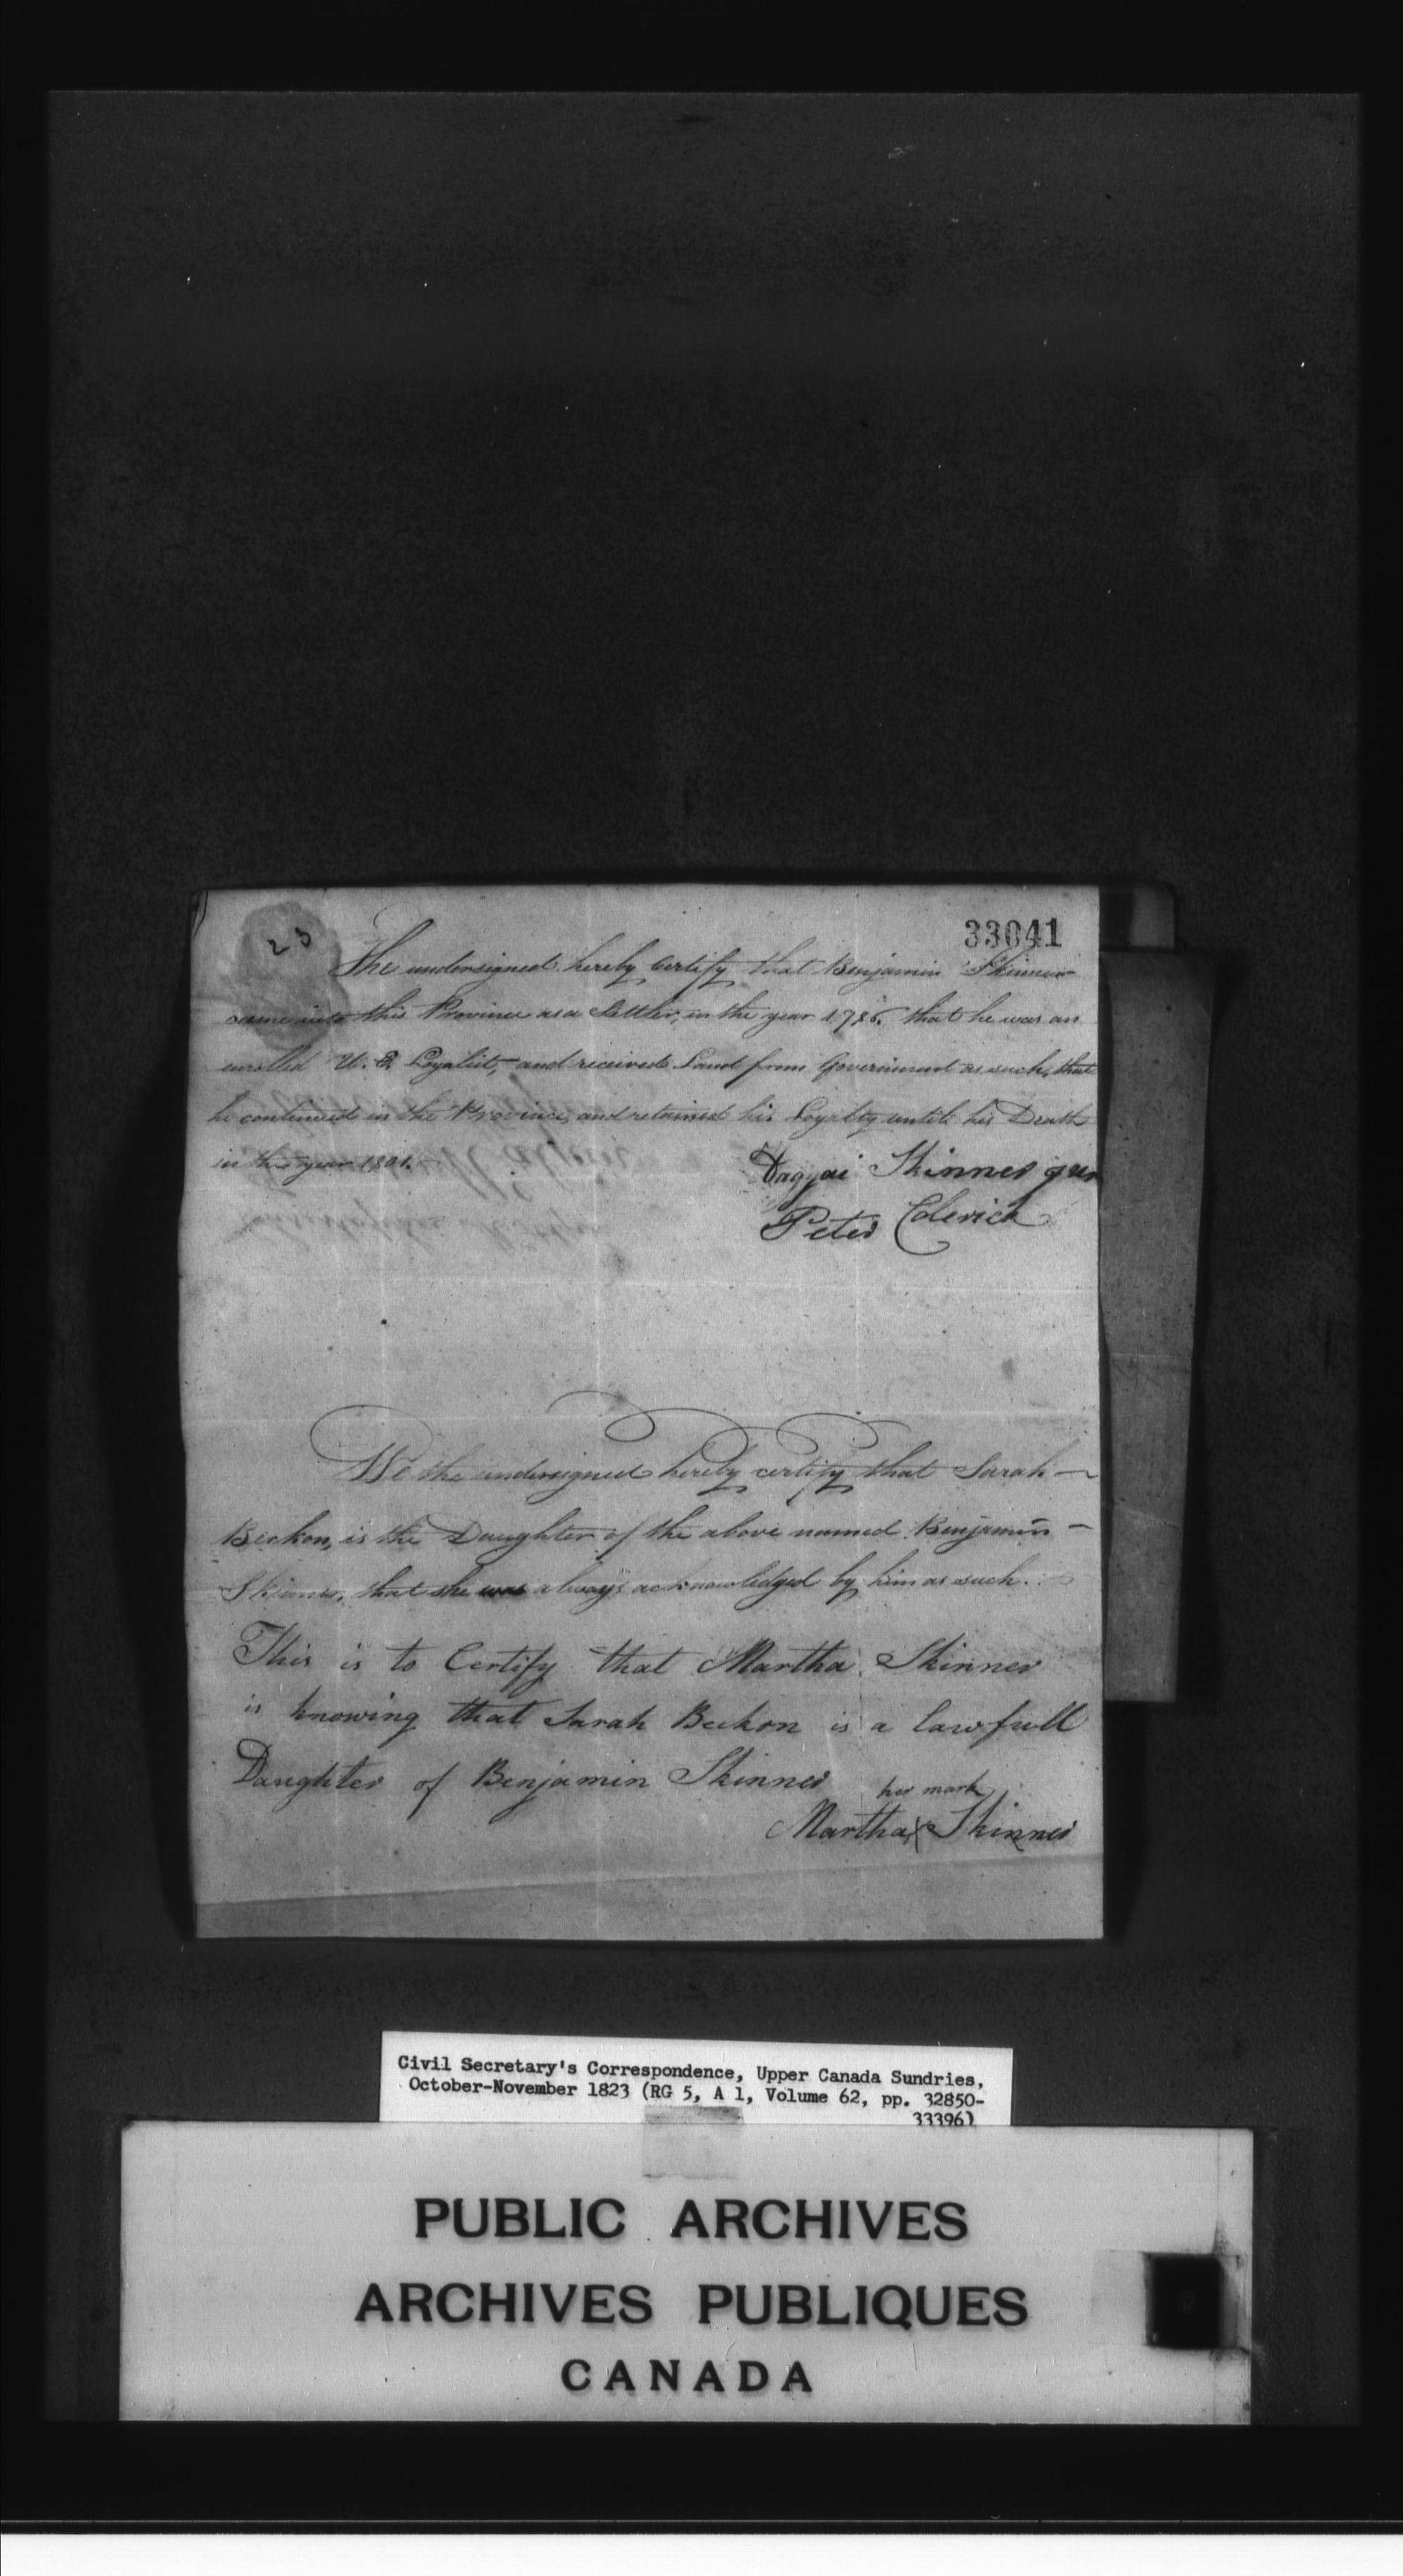 33041
23
The undersigned hereby Certify that Benjamin Skinner
came into this Province as a Settler, in the year 1786. that he was an
enrolled U. E. Loyalist, and received Land from Government as such, that
he continued in the Province, and retained his Loyalty until his Death
in the year 1801.
Skinner jun
Peter Colerick
We the undersigned hereby certify that Sarah —
Beckon, is the Daughter of the above named Benjamin —
Skinner, that she was always acknowledged by him as such.
This is to Certify that Martha Skinner
is knowing that Sarah Beckon is a lawfull
Daughter of Benjamin Skinner
her mark
Martha X Skinner
Civil Secretary's Correspondence, Upper Canada Sundries,
October-November 1823 (RG 5, A 1, Volume 62, pp. 32850-
33396)
PUBLIC ARCHIVES
ARCHIVES PUBLIQUES
CANADA